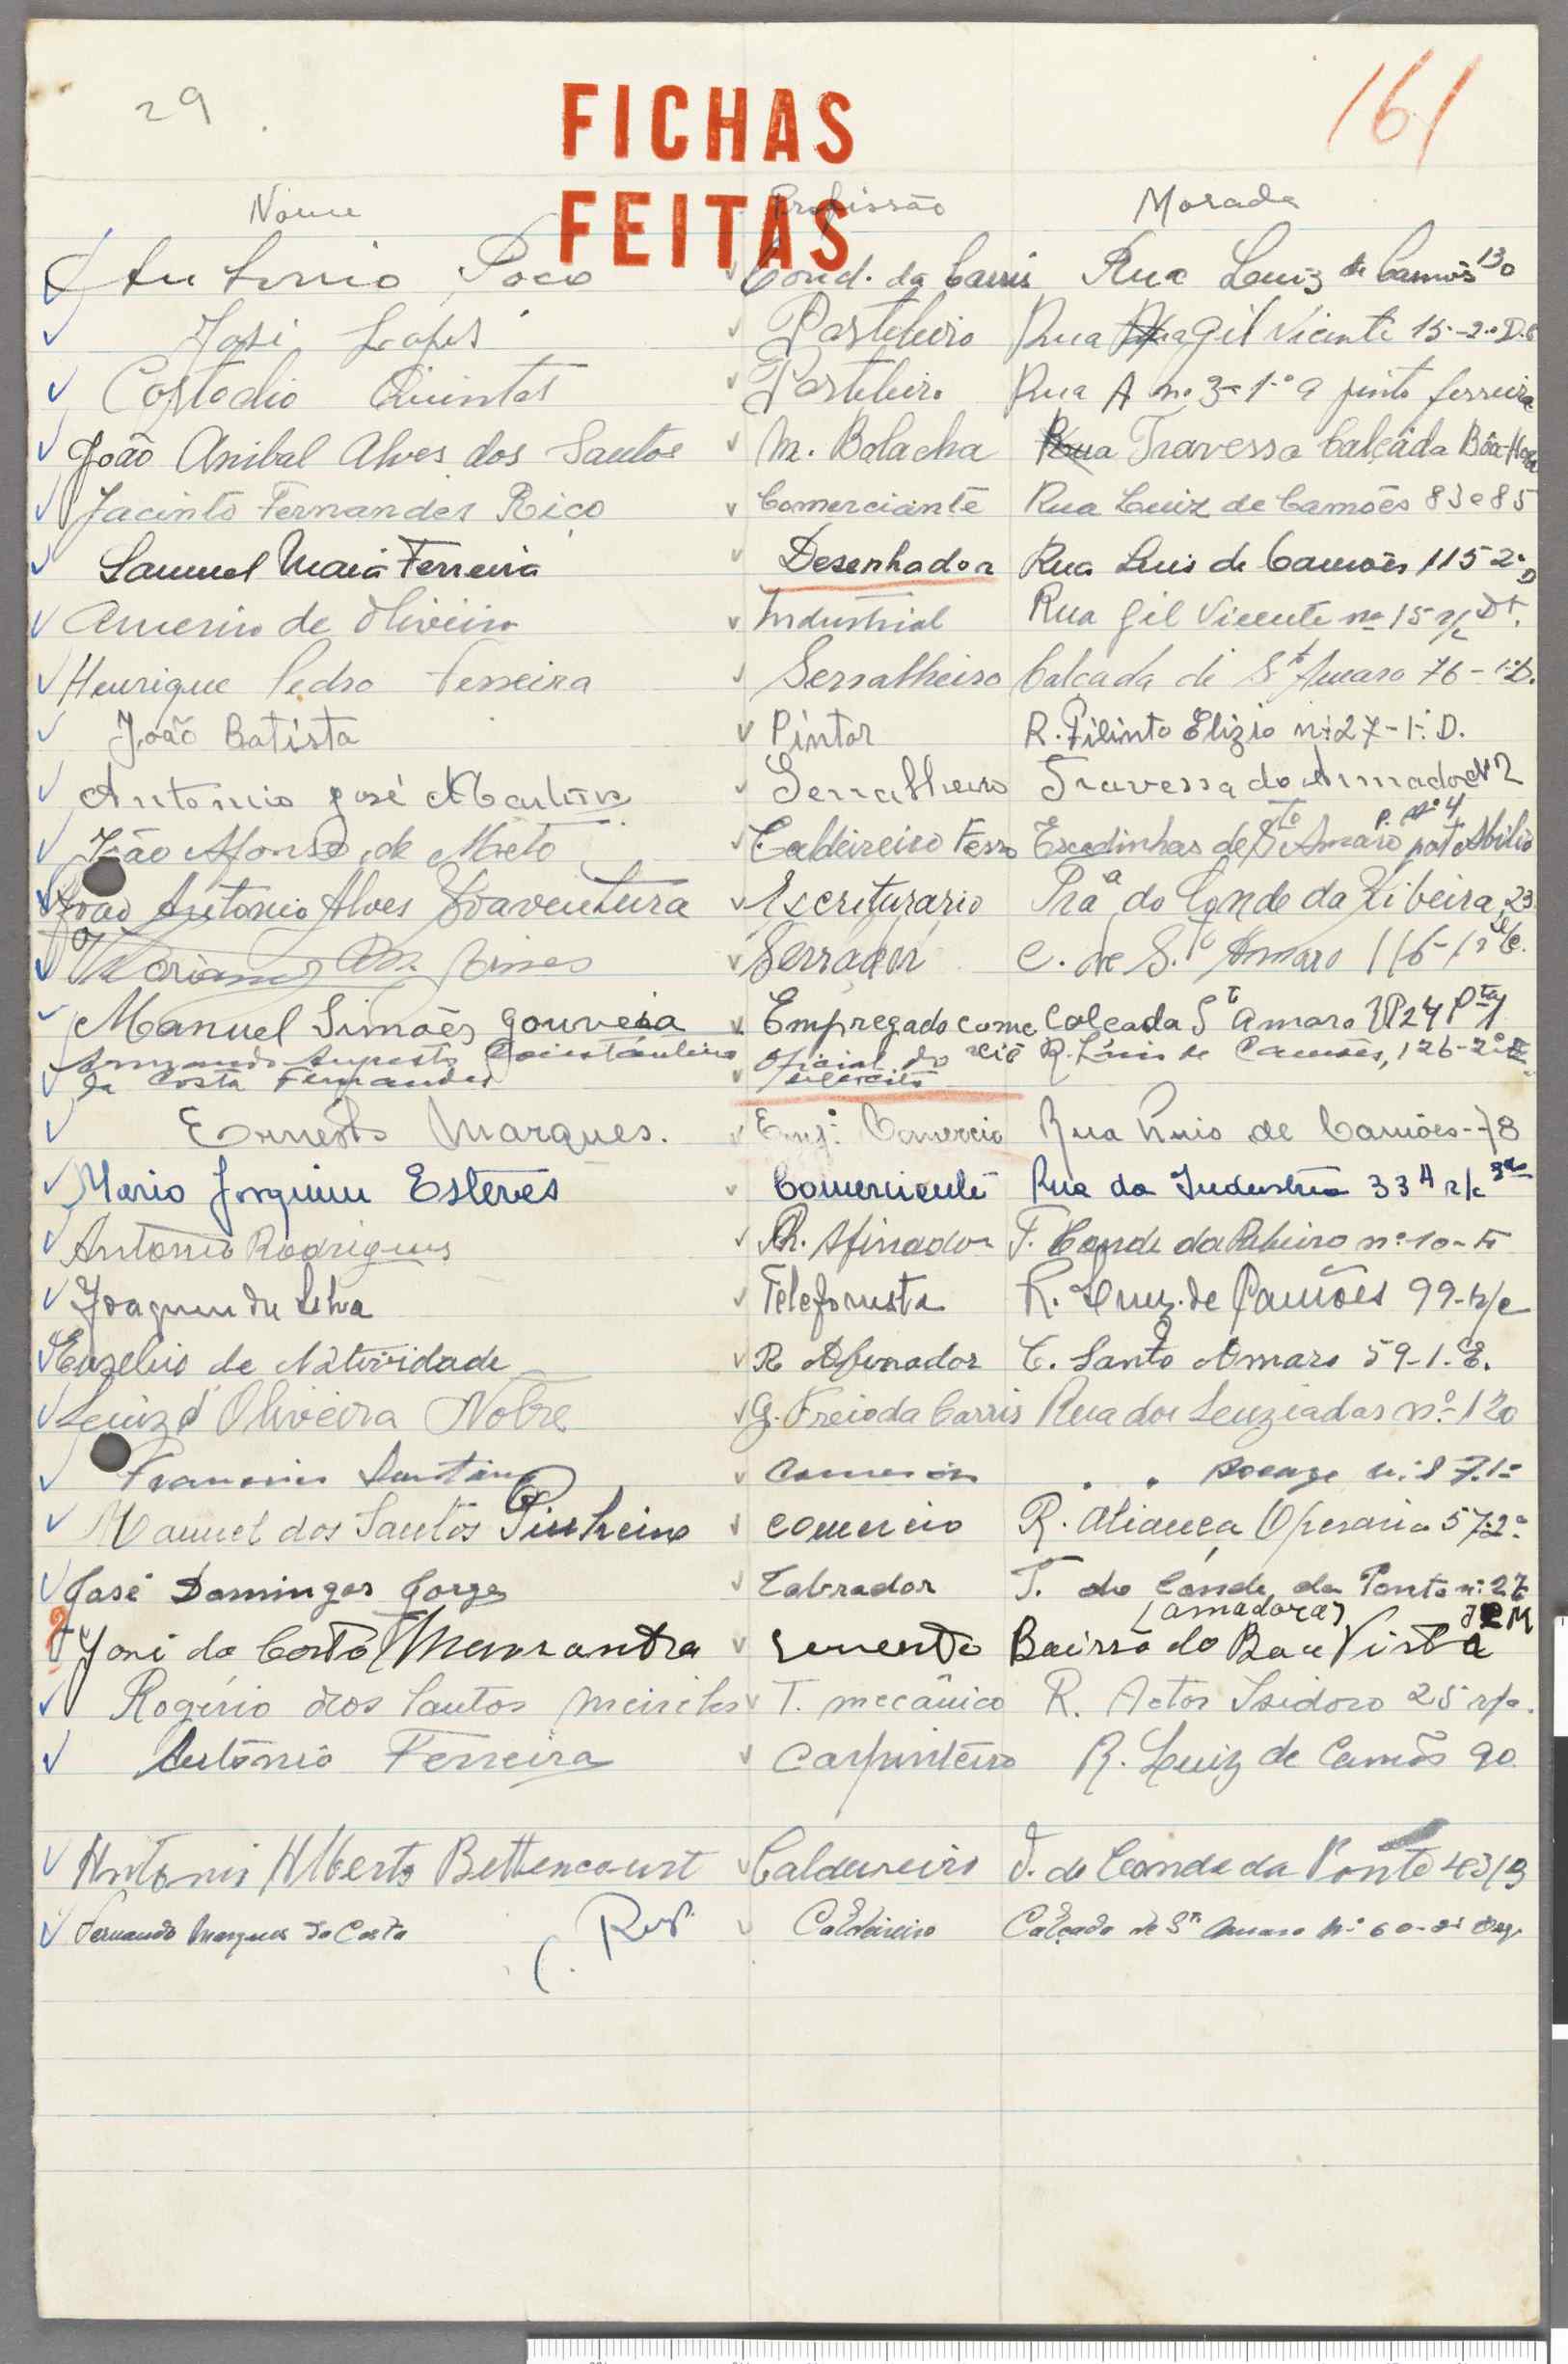 29
161
FICHAS
FEITAS
Nome Profissão Morada
Antonio Poço Cond. da Carris Rua Luiz de Camões 130
José Lopes Pasteleiro Rua Gil Vicente 15-2.º D.
Costodio Quintas Pasteleiro Rua A n.º 3-1.º a pinto ferreira
João Anibal Alves dos Santos M. Bolacha Travessa Calçada Bôa-Hora
Jacinto Fernandes Rico Comerciante Rua Luiz de Camões 83 e 85
Samuel Maia Ferreira Desenhador Rua Luis de Camões 115 2.º D
Americo de Oliveira Industrial Rua Gil Vicente nº 15 r/c Dt.
Henrique Pedro Ferreira Serralheiro Calcada de Stº Amaro 76-1.º D.
João Batista Pintor R. Filinto Elizio nº 27-1.º D.
Antonio José Martins Serralheiro Travessa do Armador Nº 2
João Afonso de Melo Caldeireiro Ferro Escadinhas de Sto Amaro pate Abilio P. Nº 4
João Antonio Alves Boaventura Escriturario Praª do Conde da Ribeira, 23
Serrador C. de S.to Amaro 116-1º
Manuel Simões Gouveia Empregado comercio Calcada St Amaro VP24 Pta 1
Armando Augusto Constantino da Costa Fernandes Oficial do exercito R. Luis de Camões, 126-2º
Ernesto Marques. Empº Comercio Rua Luis de Camões-78
Mario Joaquim Esteves Comerciante Rua da Industria 33 A r/c
Antonio Rodrigues R. Afinador T. Conde da Ribeira nº 10
Joaquim da Silva Telefonista R. Luiz de Camões 99-r/c
Euzebio de Natividade R Afinador C. Santo Amaro 59-1.º E.
Luiz d'Oliveira Nobre G. Freio da Carris Rua dos Luziadas nº 120
Comercio " " Bocage nº 87.1º
Manuel dos Santos Pinheiro comercio R. Aliança Operaria 57-2º
José Domingos Jorge Labrador T. do Conde da Ponte nº 27
José da Costa Bairro do Boa Vista (amadora) J M
Rogério dos Santos Meireles T. mecânico R. Actor Isidoro 25 r/c.
António Ferreira Carpinteiro R. Luiz de Camões 90
Antonio Alberto Bettencourt Caldeireiro T. do Conde da Ponte 43/B
Fernando Marques da Costa Caldeireiro Calçada de Stº Amaro Nº 60-2º Esq.